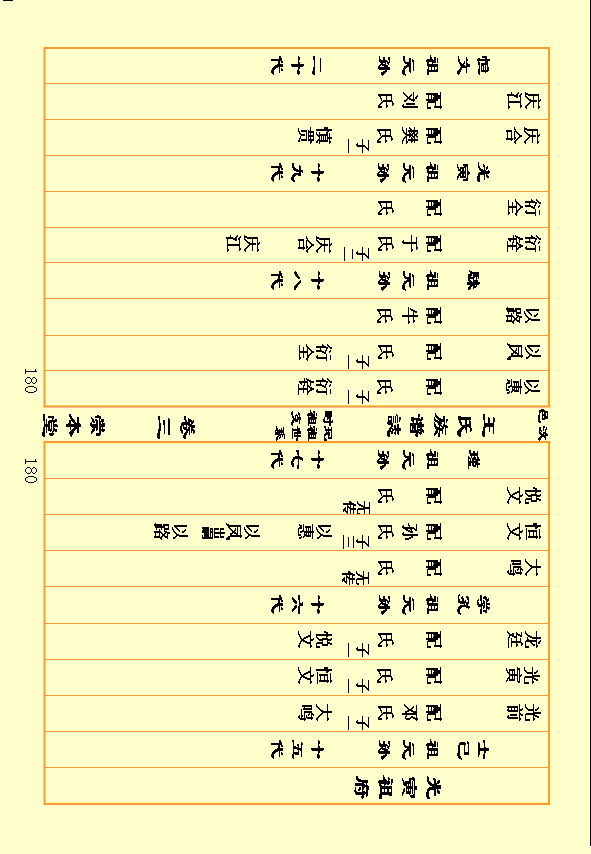 光寅祖府
士己祖元孙 十五代
光前 配邓氏 子一 大鸣
光寅 配 氏 子一 恒文
龙廷 配 氏 子一 悦文
学孔祖元孙 十六代
大鸣 配 氏 无传
恒文 配孙氏 子三 以惠 以凤出嗣 以路
悦文 配 氏 无传
瑾祖元孙 十七代
180
汶邑 王氏族谱誌 玘祖世系 时祖支 卷三 崇本堂
180
以惠 配 氏 子一 衍铨
以凤 配 氏 子一 衍全
以路 配牛氏
祖元孙 十八代
衍铨 配于氏 子二 庆合 庆江
衍全 配 氏
光寅祖元孙 十九代
庆合 配樊氏 子一 慎贯
庆江 配刘氏
恒文祖元孙 二十代